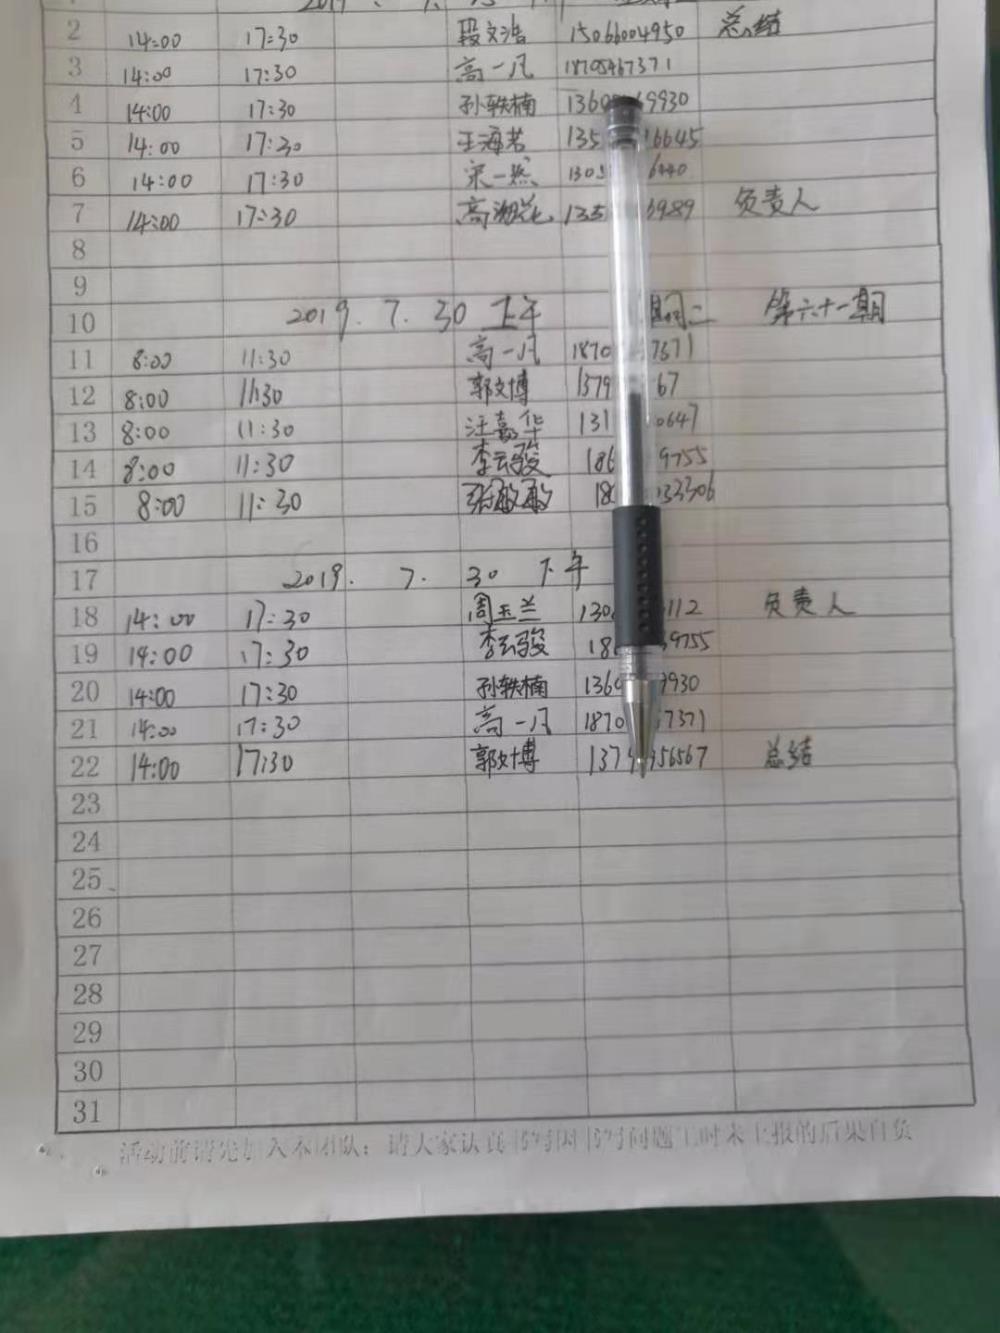 2 14:00 17:30 段文浩 15066004950 总结
3 14:00 17:30 高一凡 18705467371
4 14:00 17:30 孙轶楠 1360 69930
5 14:00 17:30 王海若 135 16645
6 14:00 17:30 宋一然 130 6440
7 14:00 17:30 高湘花 135 6989 负责人
8
9
10 2019.7.30 上午 期二 第六十一期
11 8:00 11:30 高一凡 1870 7371
12 8:00 11:30 郭文博 1379 67
13 8:00 11:30 汪嘉华 131 0647
14 8:00 11:30 李云骏 186 9755
15 8:00 11:30 张敏敏 18 133306
16
17 2019. 7. 30 下午
18 14:00 17:30 周玉兰 130 112 负责人
19 14:00 17:30 李云骏 18 9755
20 14:00 17:30 孙轶楠 136 9930
21 14:00 17:30 高一凡 1870 7371
22 14:00 17:30 郭文博 137 956567 总结
23
24
25
26
27
28
29
30
31
活动前请先加入本团队；请大家认真书写因书写问题工时未上报的后果自负